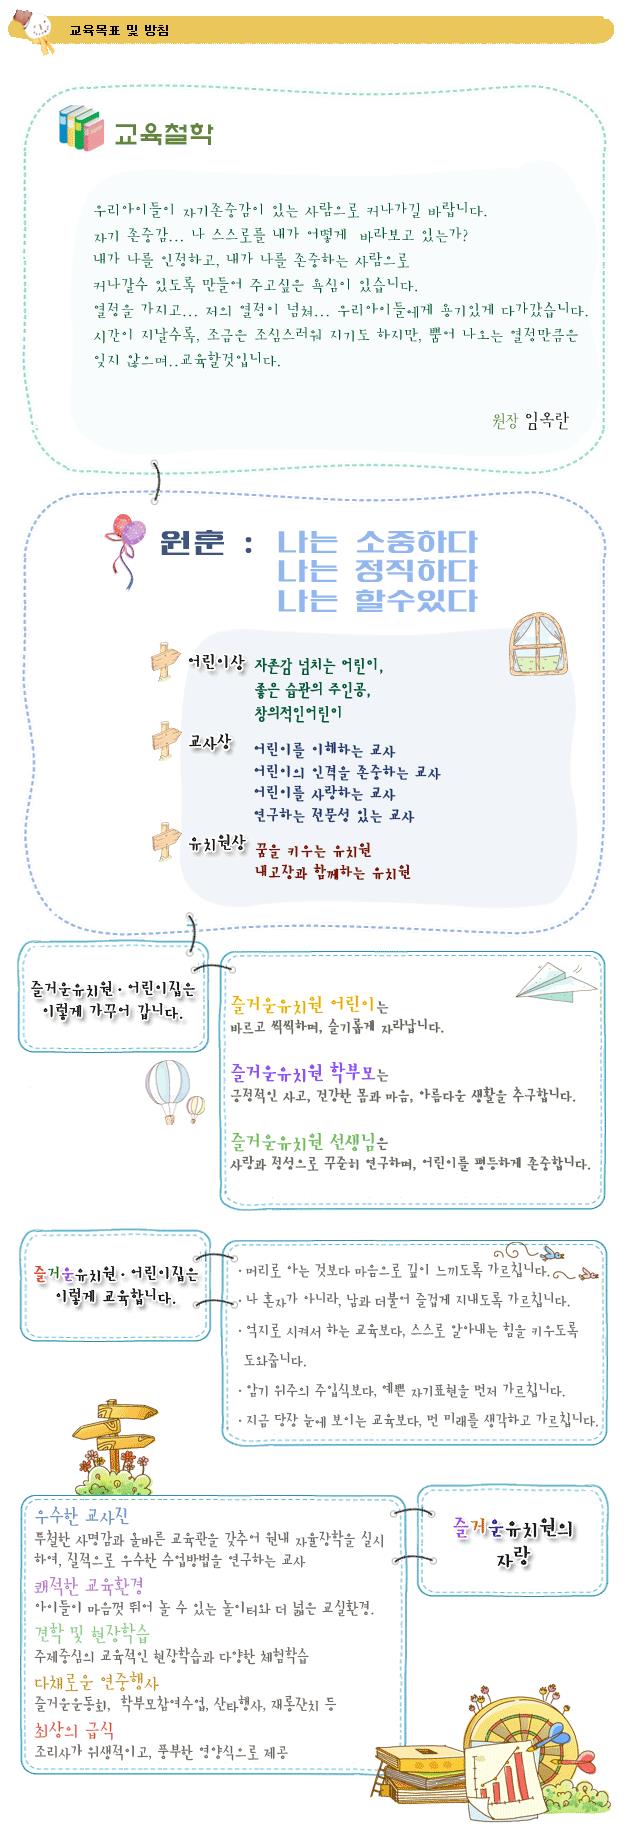 교육목표 및 방침
교육철학
우리아이들이 자기존중감이 있는 사람으로 커나가길 바랍니다.
자기 존중감... 나 스스로를 내가 어떻게 바라보고 있는가?
내가 나를 인정하고, 내가 나를 존중하는 사람으로
커나갈수 있도록 만들어 주고싶은 욕심이 있습니다.
열정을 가지고... 저의 열정이 넘쳐... 우리아이들에게 용기있게 다가갔습니다.
시간이 지날수록, 조금은 조심스러워 지기도 하지만, 뿜어 나오는 열정만큼은
잊지 않으며..교육할것입니다.
원장 임옥란
원훈 : 나는 소중하다
나는 정직하다
나는 할수있다
어린이상 자존감 넘치는 어린이,
좋은 습관의 주인공,
창의적인어린이
교사상 어린이를 이해하는 교사
어린이의 인격을 존중하는 교사
어린이를 사랑하는 교사
연구하는 전문성 있는 교사
유치원상 꿈을 키우는 유치원
내고장과 함께하는 유치원
즐거운유치원·어린이집은
이렇게 가꾸어 갑니다.
즐거운유치원 어린이는
바르고 씩씩하며, 슬기롭게 자라납니다.
즐거운유치원 학부모는
긍정적인 사고, 건강한 몸과 마음, 아름다운 생활을 추구합니다.
즐거운유치원 선생님은
사랑과 정성으로 꾸준히 연구하며, 어린이를 평등하게 존중합니다.
즐거운유치원·어린이집은
이렇게 교육합니다.
·머리로 아는 것보다 마음으로 깊이 느끼도록 가르칩니다.
·나 혼자가 아니라, 남과 더불어 즐겁게 지내도록 가르칩니다.
·억지로 시켜서 하는 교육보다, 스스로 알아내는 힘을 키우도록
도와줍니다.
·암기 위주의 주입식보다, 예쁜 자기표현을 먼저 가르칩니다.
·지금 당장 눈에 보이는 교육보다, 먼 미래를 생각하고 가르칩니다.
즐거운유치원의
자랑
우수한 교사진
투철한 사명감과 올바른 교육관을 갖추어 원내 자율장학을 실시
하여, 질적으로 우수한 수업방법을 연구하는 교사
쾌적한 교육환경
아이들이 마음껏 뛰어 놀 수 있는 놀이터와 더 넓은 교실환경.
견학 및 현장학습
주제중심의 교육적인 현장학습과 다양한 체험학습
다채로운 연중행사
즐거운운동회, 학부모참여수업, 산타행사, 재롱잔치 등
최상의 급식
조리사가 위생적이고, 풍부한 영양식으로 제공